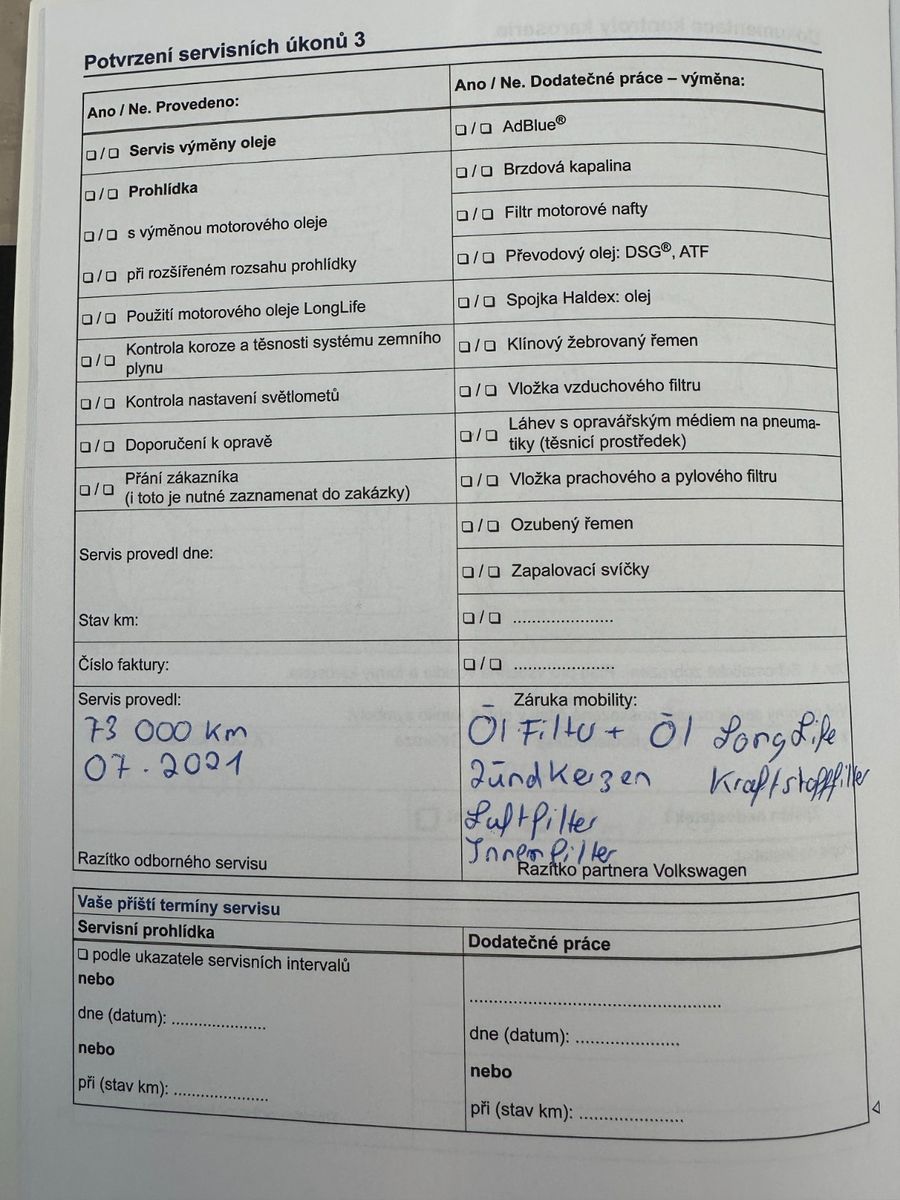 Potvrzení servisních úkonů 3
Ano / Ne. Provedeno:
❏ / ❏ Servis výměny oleje
❏ / ❏ Prohlídka
❏ / ❏ s výměnou motorového oleje
❏ / ❏ při rozšířeném rozsahu prohlídky
❏ / ❏ Použití motorového oleje LongLife
❏ / ❏ Kontrola koroze a těsnosti systému zemního
plynu
❏ / ❏ Kontrola nastavení světlometů
❏ / ❏ Doporučení k opravě
❏ / ❏ Přání zákazníka
(i toto je nutné zaznamenat do zakázky)
Servis provedl dne:
Stav km:
Číslo faktury:
Ano / Ne. Dodatečné práce – výměna:
❏ / ❏ AdBlue®
❏ / ❏ Brzdová kapalina
❏ / ❏ Filtr motorové nafty
❏ / ❏ Převodový olej: DSG®, ATF
❏ / ❏ Spojka Haldex: olej
❏ / ❏ Klínový žebrovaný řemen
❏ / ❏ Vložka vzduchového filtru
❏ / ❏ Láhev s opravářským médiem na pneuma-
tiky (těsnicí prostředek)
❏ / ❏ Vložka prachového a pylového filtru
❏ / ❏ Ozubený řemen
❏ / ❏ Zapalovací svíčky
❏ / ❏ ......................
❏ / ❏ ......................
Servis provedl:
73 000 Km
07.2021
Razítko odborného servisu
Záruka mobility:
Öl Filter + Öl LongLife
Zündkerzen Kraftstofffilter
Luftfilter
Innenfilter
Razítko partnera Volkswagen
Vaše příští termíny servisu
Servisní prohlídka
❏ podle ukazatele servisních intervalů
nebo
dne (datum): .....................
nebo
při (stav km): .....................
Dodatečné práce
.......................................................
dne (datum): .......................
nebo
při (stav km): .......................